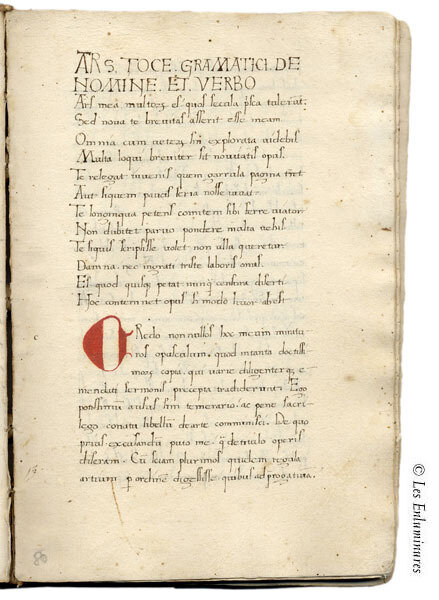 ARS. FOCE. GRAMATICI. DE
NOMINE. ET. VERBO
Ars mea multoꝝ es quos secula p̃sca tulerũt
Sed noua te breuitas asserit esse meam.
Omnia cum ueteꝝ sint explorata uidebis
Multa loqui breuiter sit nouitatis opus.
Te relegat iuuenis quem garrula pagina t̃ret
Aut siquem paucis seria nosse iuuat.
Te longinqua petens comitem sibi ferre uiator
Non dubitet paruo pondere multa uehis
Te siquis scripsisse uolet non ulla queretur
Damna nec ingrati triste laboris onus.
Est quod quisq; petat nunq̃ censura diserti
Hoc contemnet opus si modo liuor abest
CRedo non nullos hoc meum miratu-
ros opusculum, quod in tanta doctissi
moꝝ copia, qui uarie diligenterq; e-
mendati sermonis precepta tradiderunt. Ego
potissimum ausus sim temerario, ac pene sacri-
lego conatu libellũ de arte communisci. De quo
prius excusandũ puto me. q̃ de titulo operis
diseram. Cũ sciam plurimos quidem regula
artium p ordinẽ digessisse quibus ad prog
80
© Les Enluminures